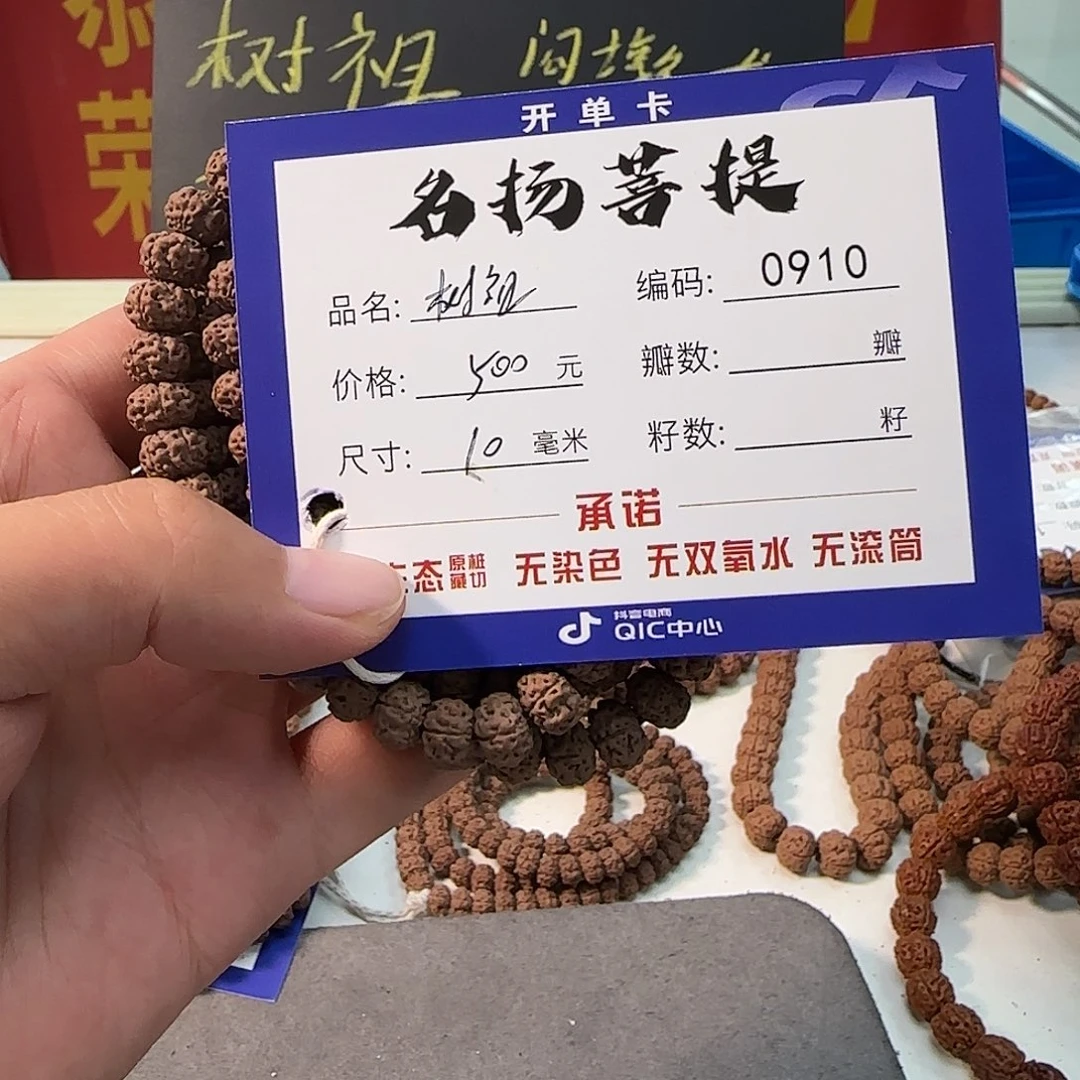 恭
荣
树祖
开单卡
名扬菩提
品名: 树祖
编码: 0910
价格: 500 元
瓣数: 瓣
尺寸: 10 毫米
籽数: 籽
承诺
态 原桩藏切 无染色 无双氧水 无滚筒
抖音电商
QIC中心